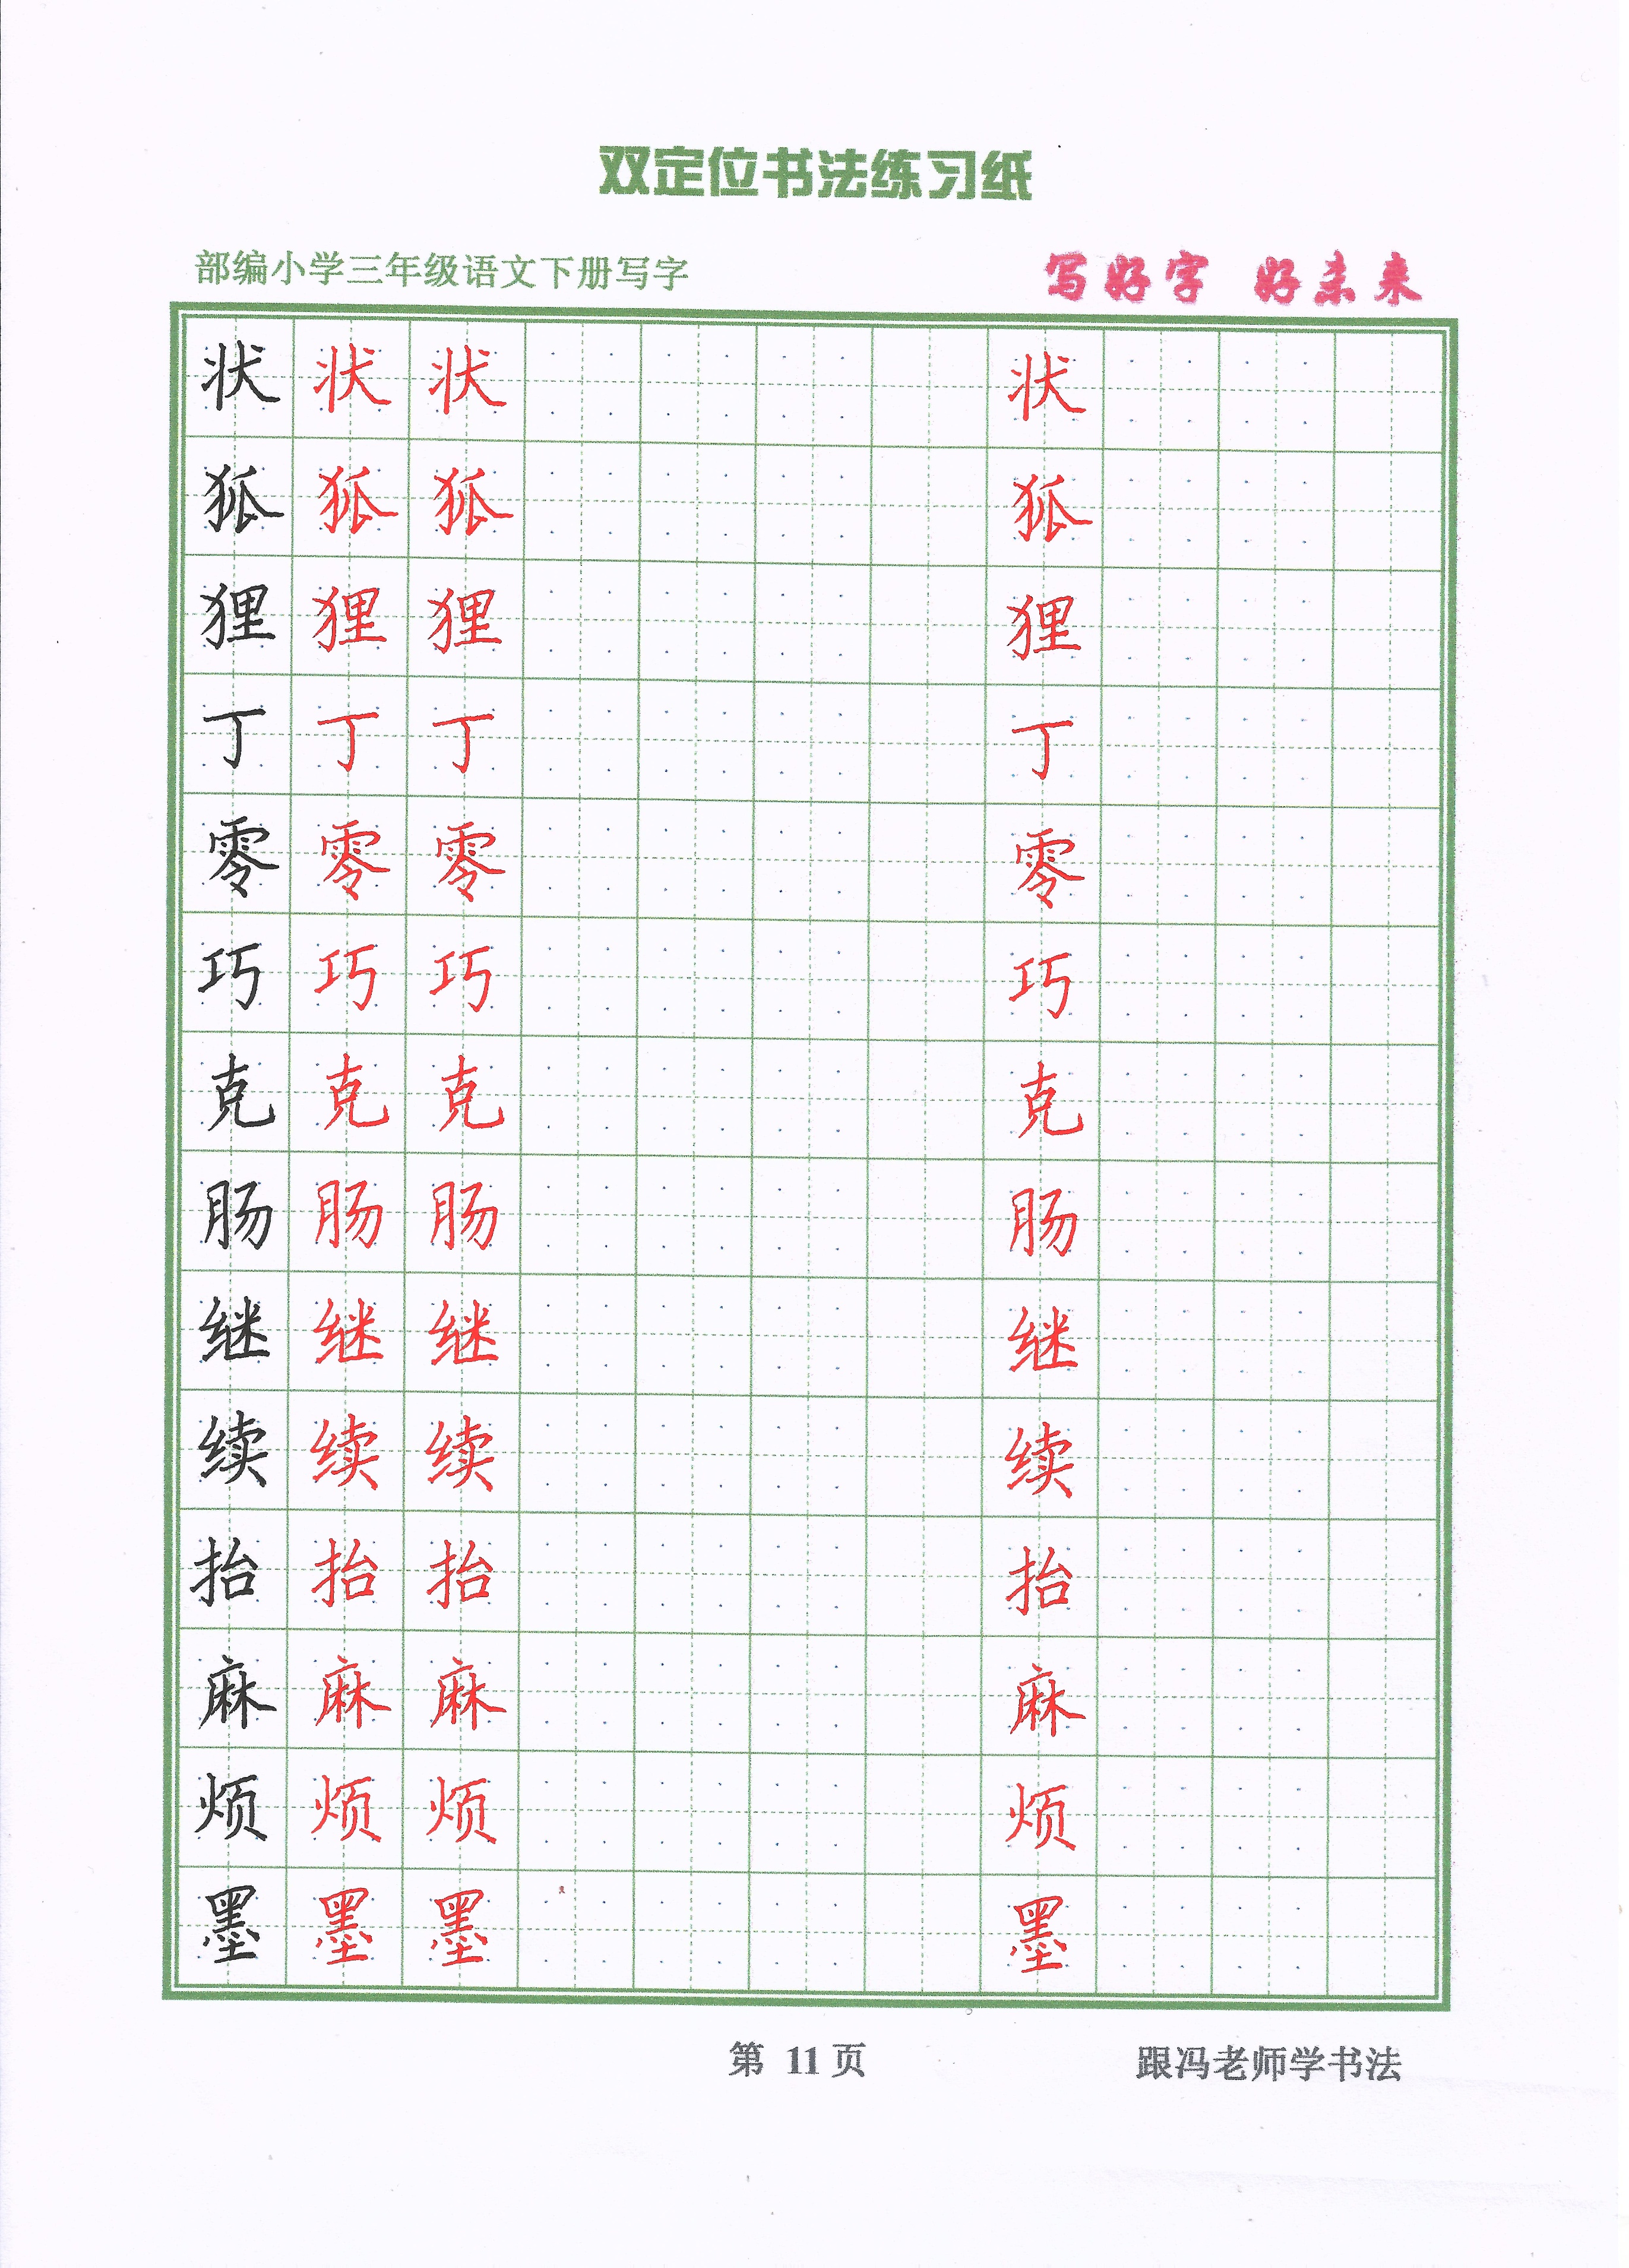 双定位书法练习纸
部编小学三年级语文下册写字 写好字 好未来
状 状 状 状
狐 狐 狐 狐
狸 狸 狸 狸
丁 丁 丁 丁
零 零 零 零
巧 巧 巧 巧
克 克 克 克
肠 肠 肠 肠
继 继 继 继
续 续 续 续
抬 抬 抬 抬
麻 麻 麻 麻
烦 烦 烦 烦
墨 墨 墨 墨
第 11 页 跟冯老师学书法